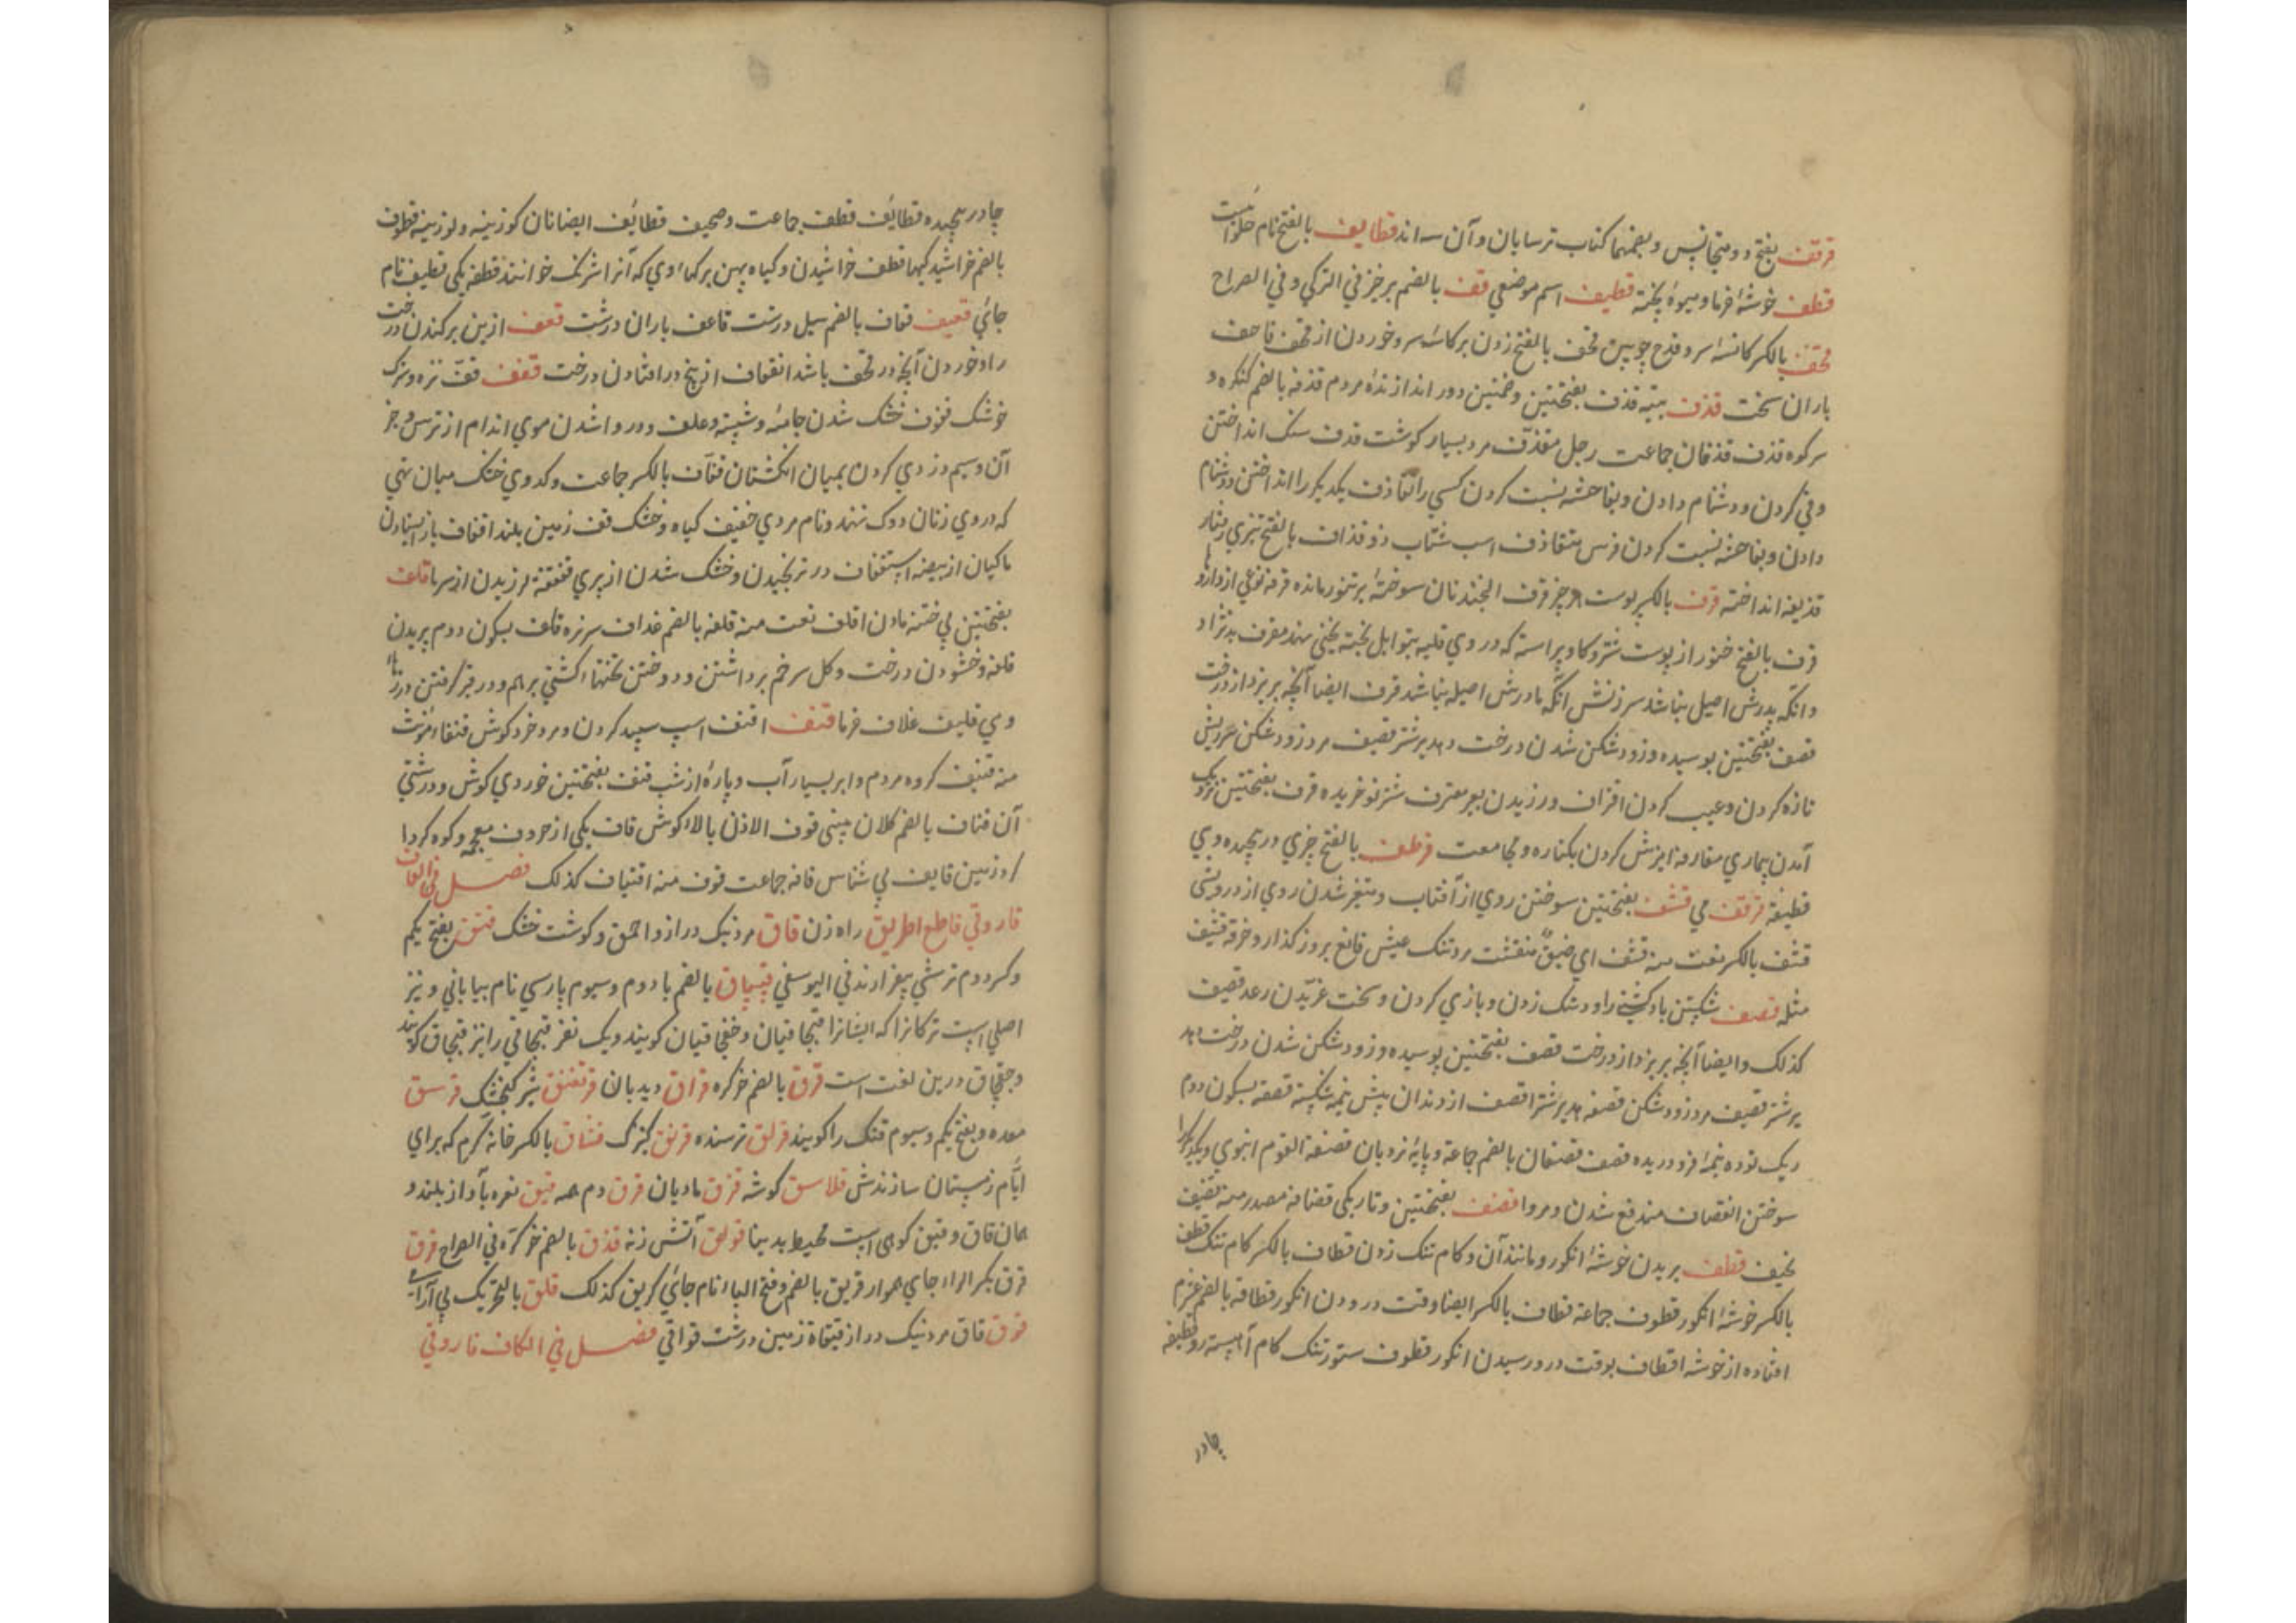 قرقف بفتح دو متجانس و بضمهما کتاب ترسایان و آن سه اند قطایف بالفتح نام حلوائیست
قطف خوشهٔ خرما و میوهٔ پخته قطیف اسم موضعی قف بالضم برخز فی الترکی و فی الصراح
قحف بالکسر کاسهٔ سر و قدح چوبین قحف بالفتح زدن بر کاسهٔ سر و خوردن از قحف قاحف
باران سخت قذف بیته قذف بفتحتین و ضمتین دور اندازندهٔ مردم قذفه بالضم کنکره و
سر کوه قذف قذفان جماعت رجل مقذّف مرد بسیار کوشت قذف سنک انداختن
و قی کردن و دشنام دادن و بفاحشه نسبت کردن کسی را تقاذف یکدیکر را انداختن و دشنام
دادن و بفاحشه نسبت کردن فرس متقاذف اسب شتاب دو قذاف بالفتح تیزی رفتار
قذیفه انداخته قرف بالکسر پوست هر چیز قرف الخبز نان سوختهٔ بر تنور مانده قرفه نوعی از داروها
قرف بالفتح خنور از پوست شتر و کاو پیراسته که در وی قلیه بتوابل پخته یخنی نهند مقرف بدنژاد
و انکه پدرش اصیل نباشد سرزنش انکه مادرش اصیله نباشد قرف ایضا آنچه بریزد از درخت
قصف بفتحتین بوسیده و زود شکن شدن درخت و هدیر شتر قصیف مرد زود شکن
تازه کردن و عیب کردن اقراف ورزیدن بعیر مقترف شتر نو خریده قرف بفتحتین نزدیک
آمدن بیماری مقارفه آمیزش کردن بکناره و مجامعت قرطف بالفتح چیزی در پیچیده و بی
قطیفه قرقف می قشف بفتحتین سوختن روی از آفتاب و متغیر شدن روی از درویشی
قشف بالکسر نعت منه قشف ای ضیق متقشف مرد تنک عیش قانع بروز کذار و خرقه قشیف
مثله قصف شکستن باد کشتی را و دشک زدن و بازی کردن و سخت غریدن رعد قصیف
کذلک و ایضا آنچه بریزد از درخت قصف بفتحتین پوسیده و زود شکن شدن درخت و هد
یر شتر قصیف مرد زود شکن قصفه هدیر شتر اقصف از دندان پیش نیمه شکسته قصفه بسکون دوم
ریک توده نیمهٔ فرو دریده قصف قصفان بالضم جماعة و پایهٔ نردبان قصفة القوم انبوهی و یکدیکر را
سوختن انقصاف مندفع شدن و مروا قضف بفتحتین و تاریکی قضافه مصدر منه قضیف
نحیف قطف بریدن خوشهٔ انکور و مانند آن و کام تنک زدن قطاف بالکسر کام تنک قطف
بالکسر خوشهٔ انکور قطوف جماعة قطاف بالکسر ایضا وقت درودن انکور قطافه بالضم غژم
افتاده از خوشه اقطاف بوقت درو رسیدن انکور قطوف ستور تنک کام آهسته رو قطیفه
چادر
چادر پیچیده قطایف قطف جماعت و صحیف قطایف ایضا نان کوزینه و لوزینه قطوف
بالضم خراشیدکیها قطف خراشیدن و کیاه پهن برکها وی که آنرا شرنک خوانند قطفه یکی قطیف نام
جائی قعیف قعاف بالضم سیل درشت قاعف باران درشت قعف از بن برکندن درخت
را و خوردن آنچه در قحف باشد انقعاف از بیخ در افتادن درخت قفف قفّ تره و برک
خوشک قفوف خشک شدن جامه و شسته و علف و دروا شدن موی اندام از ترس و جز
آن و سیم دزدی کردن بمیان انکشتان قفاف بالکسر جماعت و کدوی خشک میان تهی
که دروی زنان دوک نهند و نام مردی خفیف کیاه و خشک قف زمین بلند اقفاف باز ایستادن
ماکیان از بیضه استقفاف در ترنجیدن و خشک شدن از پیری قفقفه لرزیدن از سرما قلف
بفتحتین بی ختنه ماندن اقلف نعت منه قلفه بالضم غلاف سر نره قلف بسکون دوم بریدن
قلفه و خشودن درخت و کل سر خم برداشتن و دوختن تختهاء کشتی برهم و در قیر کرفتن درزها
وی قلیف غلاف خرما قنف اقنف اسپ سپید کردن و مرد خرد کوش قنفاء مؤنث
منه قنیف کروه مردم و ابر بسیار آب و پارهٔ از شب قنف بفتحتین خوردی کوش و درشتی
آن قناف بالضم کلان بینی قوف الاذن بالاء کوش قاف یکی از حروف معجم و کوه کرد
کرد زمین قایف پی شناس قافه جماعت قوف منه اقتیاف کذلک فصل فی القاف
قاروقی قاطع الطریق راه زن قاق مرد نیک دراز و احمق و کوشت خشک قتق بفتح یکم
و کسر دوم ترشی بپغرا رند فی الیوسفی قپچاق بالضم با دوم و سیوم پارسی نام بیابانی و نیز
اصلی است ترکانرا که ایشانرا قپچاقیان و خفچاقیان کویند و یک نفر قپچاقی را نیز قپچاق کویند
و خفچاق درین لغت است قرق بالضم خرکره قراق دیدبان قرتفنق شیر کنجشک قرسق
معده و بفتح یکم و سیوم قنک را کویند قرلق ترسنده قرنق کنیزک قشاق بالکسر خانهٔ کرم که برای
ایّام زمستان سازندش قلاسق کوشه قزق مادیان قرق دم همه قیق نعره بآواز بلند و
همان قاق و قیق کوهی است محیط بدنیا قولق آتش زنه قذق بالضم خر کرّه فی الصراح قرق
قرق بکسر الراء جای هموار قریق بالضم و فتح الیاء نام جائی کریق کذلک قلق بالتحریک بی آرامی
قوق قاق مرد نیک دراز قیقاة زمین درشت قواقی فصل فی الکاف قاروقی